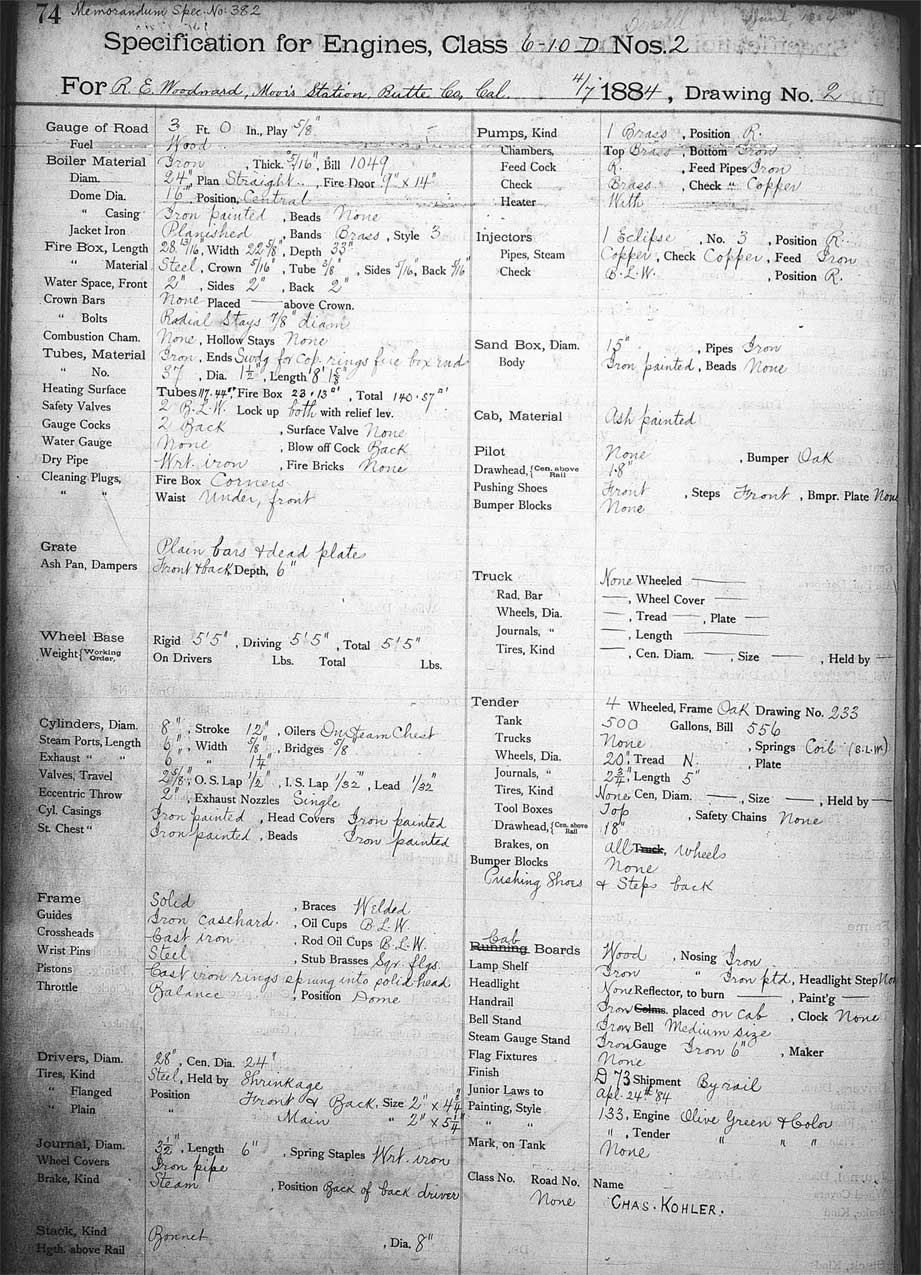 74 Memorandum Spec. No. 382
Specification for Engines, Class 6-10 D Nos. 2
For R. E. Woodward, Moor's Station, Butte Co, Cal. 4/7 1884, Drawing No. 2
Gauge of Road 3 Ft. 0 In., Play 5/8"
Fuel Wood
Boiler Material Iron, Thick. 5/16", Bill 1049
Diam. 24" Plan Straight, Fire Door 9" x 14"
Dome Dia. 16", Position, Central
" Casing Iron painted, Beads None
Jacket Iron Planished, Bands Brass, Style 3
Fire Box, Length 28 13/16", Width 22 5/8", Depth 33"
" Material Steel, Crown 5/16", Tube 3/8", Sides 5/16", Back 5/16"
Water Space, Front 2", Sides 2", Back 2"
Crown Bars None Placed — above Crown.
" Bolts Radial Stays 7/8" diam
Combustion Cham. None, Hollow Stays None
Tubes, Material Iron, Ends Swdg for Cop. rings fire box end
" No. 37, Dia. 1 1/2", Length 8'
Heating Surface Tubes 117.44 □', Fire Box 23.13 □', Total 140.57 □'
Safety Valves 2 B.L.W. Lock up both with relief lev.
Gauge Cocks 2 Back, Surface Valve None
Water Gauge None, Blow off Cock Back
Dry Pipe Wrt. iron, Fire Bricks None
Cleaning Plugs, Fire Box Corners
" " Waist Under, front
Grate Plain bars & dead plate
Ash Pan, Dampers Front & back Depth, 6"
Wheel Base Rigid 5'5", Driving 5'5", Total 5'5"
Weight { Working Order, On Drivers Lbs. Total Lbs.
Cylinders, Diam. 8", Stroke 12", Oilers On Steam Chest
Steam Ports, Length 6", Width 5/8", Bridges 5/8"
Exhaust " " 6" " 1 1/4"
Valves, Travel 2 5/8", O. S. Lap 1/2", I. S. Lap 1/32", Lead 1/32"
Eccentric Throw 2", Exhaust Nozzles Single
Cyl. Casings Iron painted, Head Covers Iron painted
St. Chest " Iron painted, Beads Iron painted
Frame Solid, Braces Welded
Guides Iron casehard., Oil Cups B.L.W.
Crossheads Cast iron, Rod Oil Cups B.L.W.
Wrist Pins Steel, Stub Brasses Sqr. flgs.
Pistons Cast iron rings sprung into solid head
Throttle Balance, Position Dome
Drivers, Diam. 28", Cen. Dia. 24"
Tires, Kind Steel, Held by Shrinkage
" Flanged Position Front & Back, Size 2" x 4 3/4"
" Plain " Main " 2" x 5 1/4"
Journal, Diam. 3 1/2", Length 6", Spring Staples Wrt. iron
Wheel Covers Iron pipe
Brake, Kind Steam, Position Back of back driver
Stack, Kind Bonnet
Hgth. above Rail, Dia. 8"
Pumps, Kind 1 Brass, Position R.
Chambers, Top Brass, Bottom Iron
Feed Cock R., Feed Pipes Iron
Check Brass, Check " Copper
Heater With
Injectors 1 Eclipse, No. 3, Position R.
Pipes, Steam Copper, Check Copper, Feed Iron
Check B.L.W., Position R.
Sand Box, Diam. 15", Pipes Iron
Body Iron painted, Beads None
Cab, Material Ash painted
Pilot None, Bumper Oak
Drawhead, { Cen. above Rail 18"
Pushing Shoes Front, Steps Front, Bmpr. Plate None
Bumper Blocks None
Truck None Wheeled —
Rad. Bar —, Wheel Cover —
Wheels, Dia. —, Tread —, Plate —
Journals, " —, Length —
Tires, Kind —, Cen. Diam. —, Size —, Held by —
Tender 4 Wheeled, Frame Oak Drawing No. 233
Tank 500 Gallons, Bill 556
Trucks None, Springs Coil (B.L.W.)
Wheels, Dia. 20", Tread N., Plate
Journals, " 2 3/4", Length 5"
Tires, Kind None, Cen. Diam. —, Size —, Held by —
Tool Boxes Top, Safety Chains None
Drawhead, { Cen. above Rail 18"
Brakes, on All Truck, Wheels
Bumper Blocks None
Pushing Shoes & Steps back
Cab
Running Boards Wood, Nosing Iron
Lamp Shelf Iron " Iron ptd., Headlight Step Non
Headlight None Reflector, to burn —, Paint'g —
Handrail Iron Colms. placed on cab, Clock None
Bell Stand Iron, Bell Medium size
Steam Gauge Stand Iron Gauge Iron 6", Maker
Flag Fixtures None
Finish D 73 Shipment By rail
Junior Laws to Apl. 24th 84
Painting, Style 133, Engine Olive Green & Color
" " ", Tender " " "
Mark, on Tank None
Class No. Road No. None Name CHAS. KOHLER.